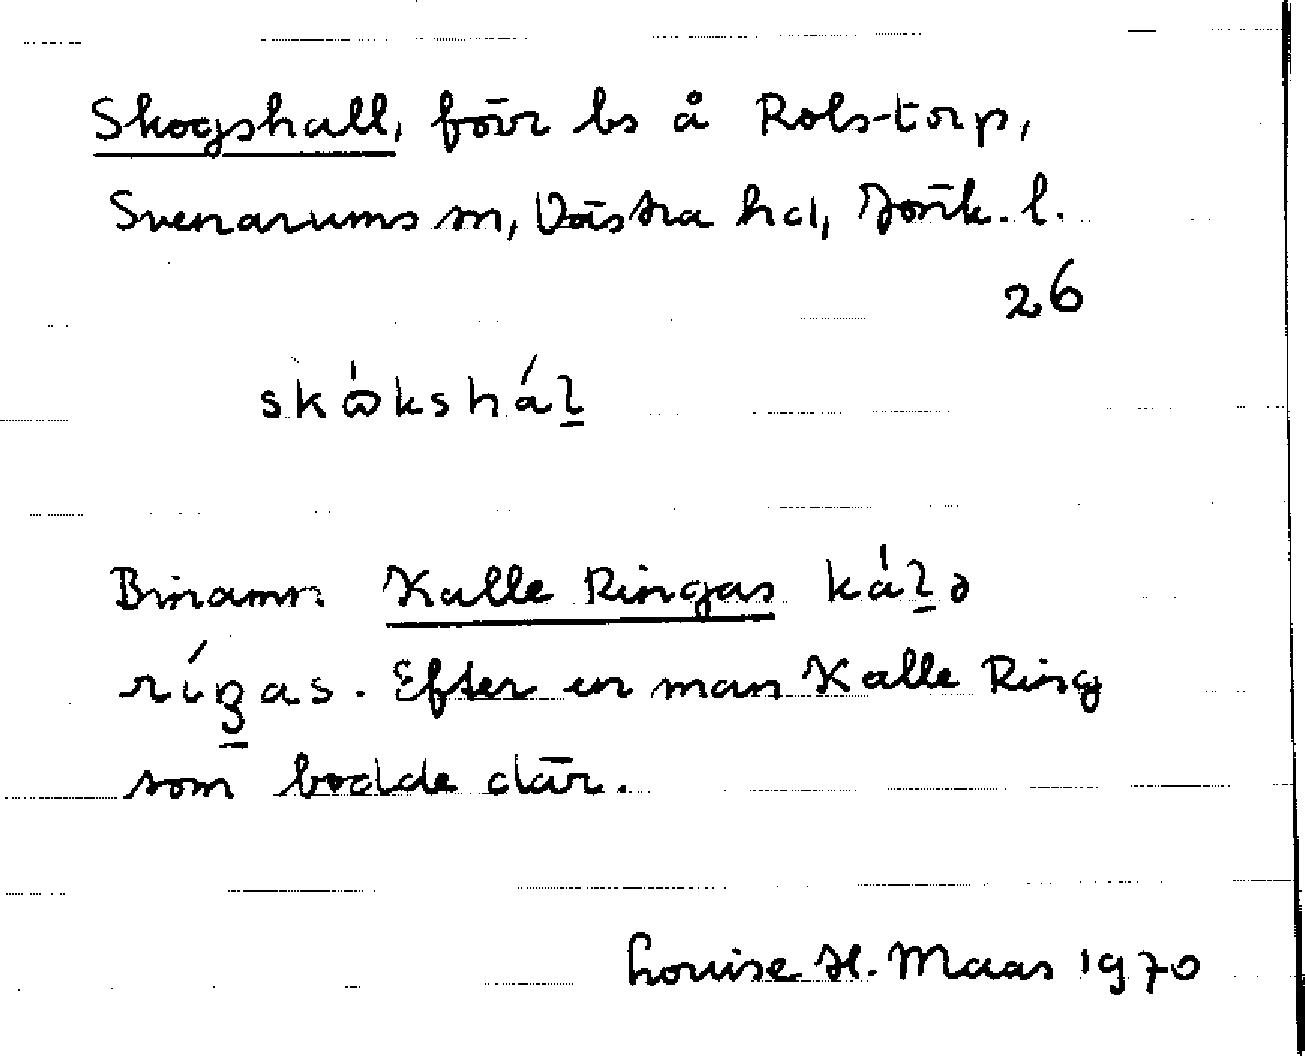 Skogshall, förr ls å Rols-torp,
Svenarums sn, Västra hd, Jönk. l.
26
skɷ̀kshál̲
Binamn Kalle Ringas kàl̲ə
ríŋ̲as. Efter en man Kalle Ring
som bodde där.
Louise H. Maas 1970